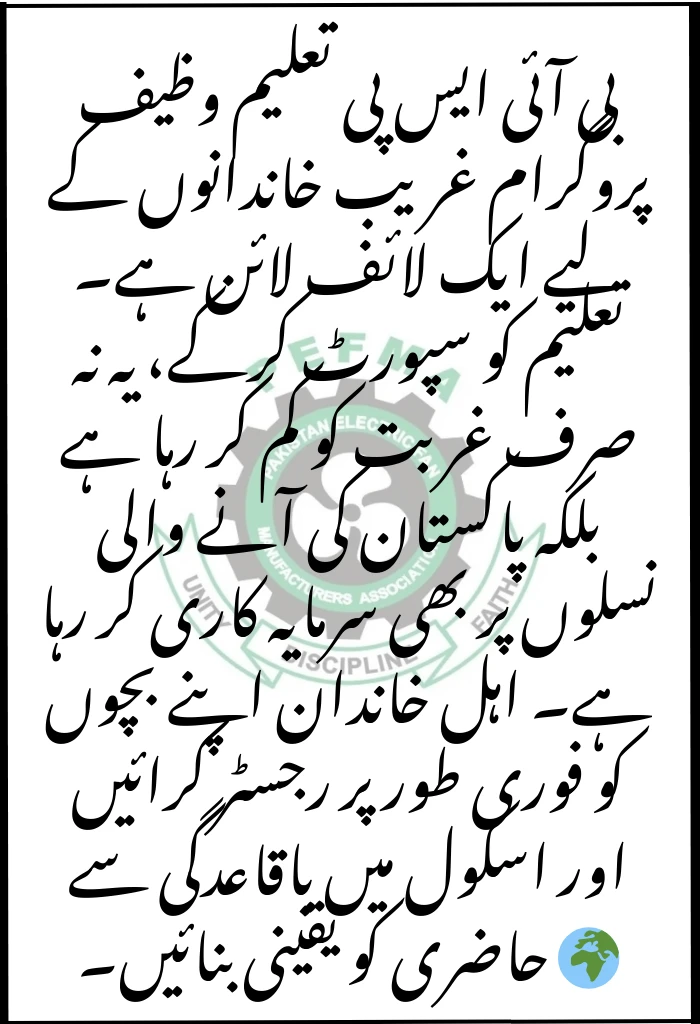 بی آئی ایس پی تعلیم وظیف
پروگرام غریب خاندانوں کے
لیے ایک لائف لائن ہے۔
تعلیم کو سپورٹ کرکے، یہ نہ
صرف غربت کو کم کر رہا ہے
بلکہ پاکستان کی آنے والی
نسلوں پر بھی سرمایہ کاری کر رہا
ہے۔ اہل خاندان اپنے بچوں
کو فوری طور پر رجسٹر کرائیں
اور اسکول میں باقاعدگی سے
🌍 حاضری کو یقینی بنائیں۔
PEFMA
PAKISTAN ELECTRIC FAN
MANUFACTURERS ASSOCIATION
UNITY
DISCIPLINE
FAITH